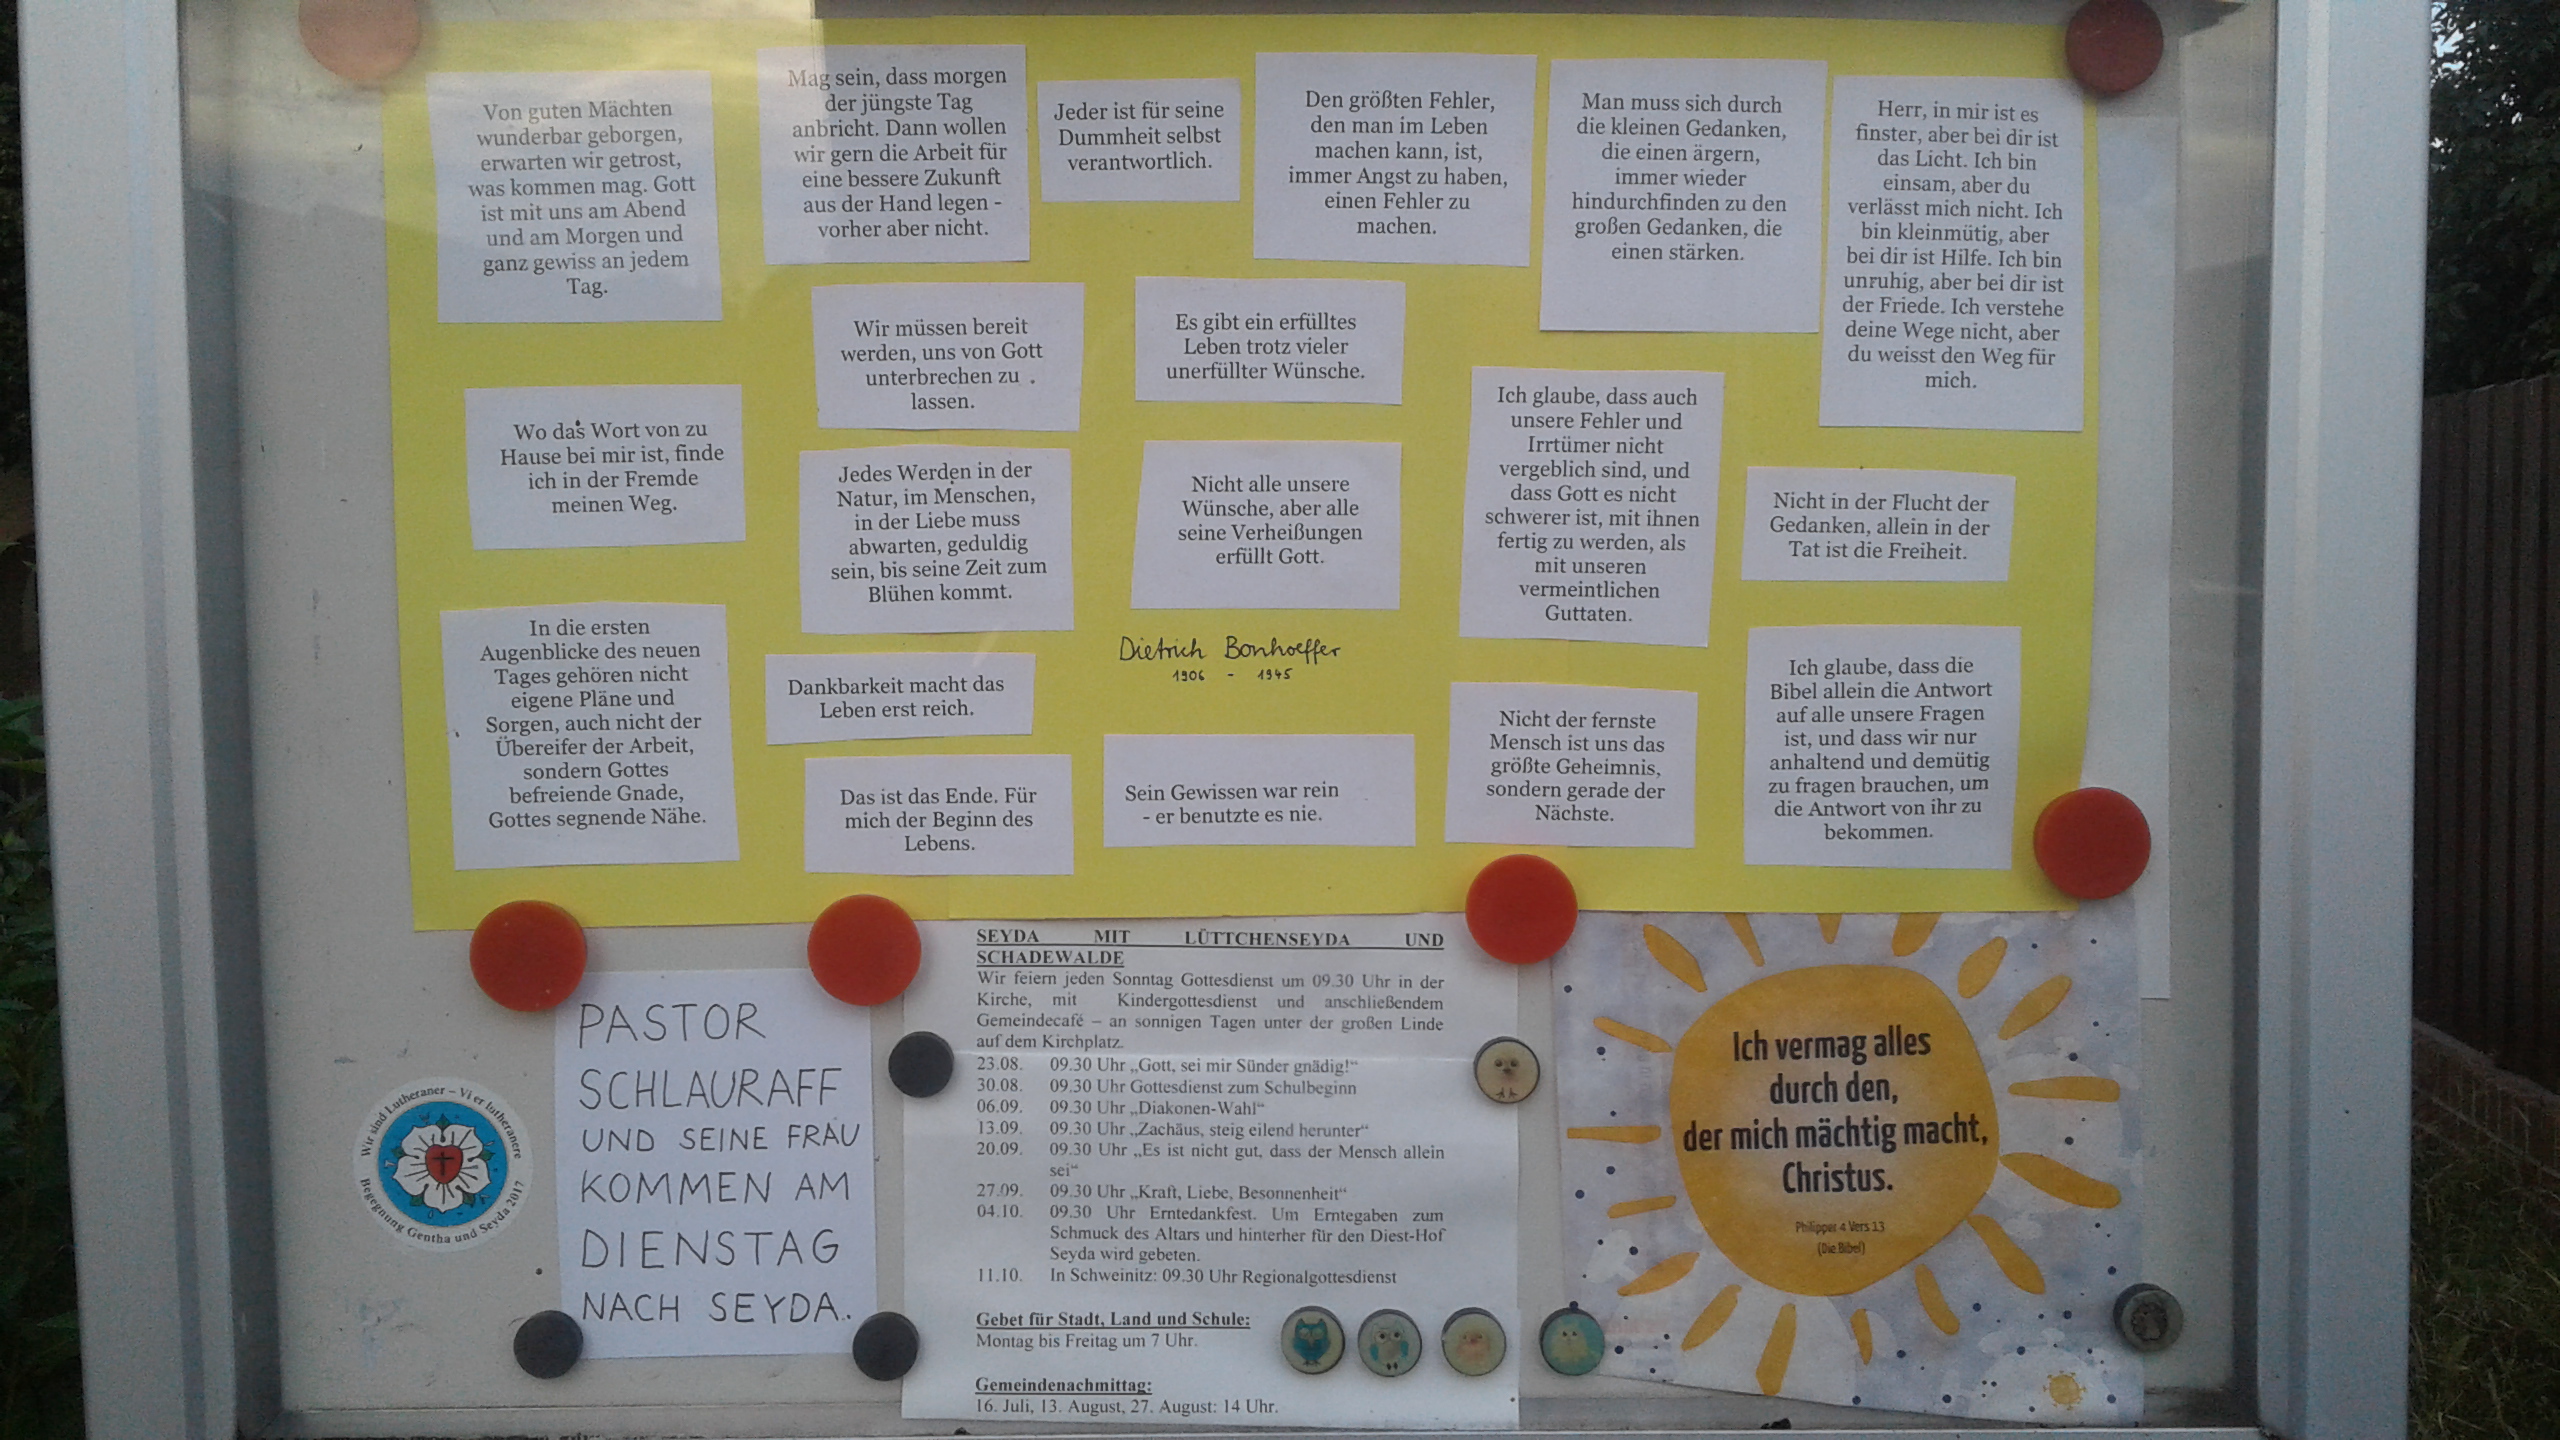 Von guten Mächten
wunderbar geborgen,
erwarten wir getrost,
was kommen mag. Gott
ist mit uns am Abend
und am Morgen und
ganz gewiss an jedem
Tag.
Mag sein, dass morgen
der jüngste Tag
anbricht. Dann wollen
wir gern die Arbeit für
eine bessere Zukunft
aus der Hand legen -
vorher aber nicht.
Jeder ist für seine
Dummheit selbst
verantwortlich.
Den größten Fehler,
den man im Leben
machen kann, ist,
immer Angst zu haben,
einen Fehler zu
machen.
Man muss sich durch
die kleinen Gedanken,
die einen ärgern,
immer wieder
hindurchfinden zu den
großen Gedanken, die
einen stärken.
Herr, in mir ist es
finster, aber bei dir ist
das Licht. Ich bin
einsam, aber du
verlässt mich nicht. Ich
bin kleinmütig, aber
bei dir ist Hilfe. Ich bin
unruhig, aber bei dir ist
der Friede. Ich verstehe
deine Wege nicht, aber
du weisst den Weg für
mich.
Wir müssen bereit
werden, uns von Gott
unterbrechen zu
lassen.
Es gibt ein erfülltes
Leben trotz vieler
unerfüllter Wünsche.
Wo das Wort von zu
Hause bei mir ist, finde
ich in der Fremde
meinen Weg.
Jedes Werden in der
Natur, im Menschen,
in der Liebe muss
abwarten, geduldig
sein, bis seine Zeit zum
Blühen kommt.
Nicht alle unsere
Wünsche, aber alle
seine Verheißungen
erfüllt Gott.
Ich glaube, dass auch
unsere Fehler und
Irrtümer nicht
vergeblich sind, und
dass Gott es nicht
schwerer ist, mit ihnen
fertig zu werden, als
mit unseren
vermeintlichen
Guttaten.
Nicht in der Flucht der
Gedanken, allein in der
Tat ist die Freiheit.
In die ersten
Augenblicke des neuen
Tages gehören nicht
eigene Pläne und
Sorgen, auch nicht der
Übereifer der Arbeit,
sondern Gottes
befreiende Gnade,
Gottes segnende Nähe.
Dankbarkeit macht das
Leben erst reich.
Dietrich Bonhoeffer
1906 - 1945
Das ist das Ende. Für
mich der Beginn des
Lebens.
Sein Gewissen war rein
- er benutzte es nie.
Nicht der fernste
Mensch ist uns das
größte Geheimnis,
sondern gerade der
Nächste.
Ich glaube, dass die
Bibel allein die Antwort
auf alle unsere Fragen
ist, und dass wir nur
anhaltend und demütig
zu fragen brauchen, um
die Antwort von ihr zu
bekommen.
Wir sind Lutheraner – Vi er lutheranere
Begegnung Gentha und Seyda 2017
PASTOR
SCHLAURAFF
UND SEINE FRAU
KOMMEN AM
DIENSTAG
NACH SEYDA.
SEYDA MIT LÜTTCHENSEYDA UND
SCHADEWALDE
Wir feiern jeden Sonntag Gottesdienst um 09.30 Uhr in der
Kirche, mit Kindergottesdienst und anschließendem
Gemeindecafé – an sonnigen Tagen unter der großen Linde
auf dem Kirchplatz.
23.08. 09.30 Uhr „Gott, sei mir Sünder gnädig!“
30.08. 09.30 Uhr Gottesdienst zum Schulbeginn
06.09. 09.30 Uhr „Diakonen-Wahl“
13.09. 09.30 Uhr „Zachäus, steig eilend herunter“
20.09. 09.30 Uhr „Es ist nicht gut, dass der Mensch allein
sei“
27.09. 09.30 Uhr „Kraft, Liebe, Besonnenheit“
04.10. 09.30 Uhr Erntedankfest. Um Erntegaben zum
Schmuck des Altars und hinterher für den Diest-Hof
Seyda wird gebeten.
11.10. In Schweinitz: 09.30 Uhr Regionalgottesdienst
Gebet für Stadt, Land und Schule:
Montag bis Freitag um 7 Uhr.
Gemeindenachmittag:
16. Juli, 13. August, 27. August: 14 Uhr.
Ich vermag alles
durch den,
der mich mächtig macht,
Christus.
Philipper 4 Vers 13
(Die Bibel)